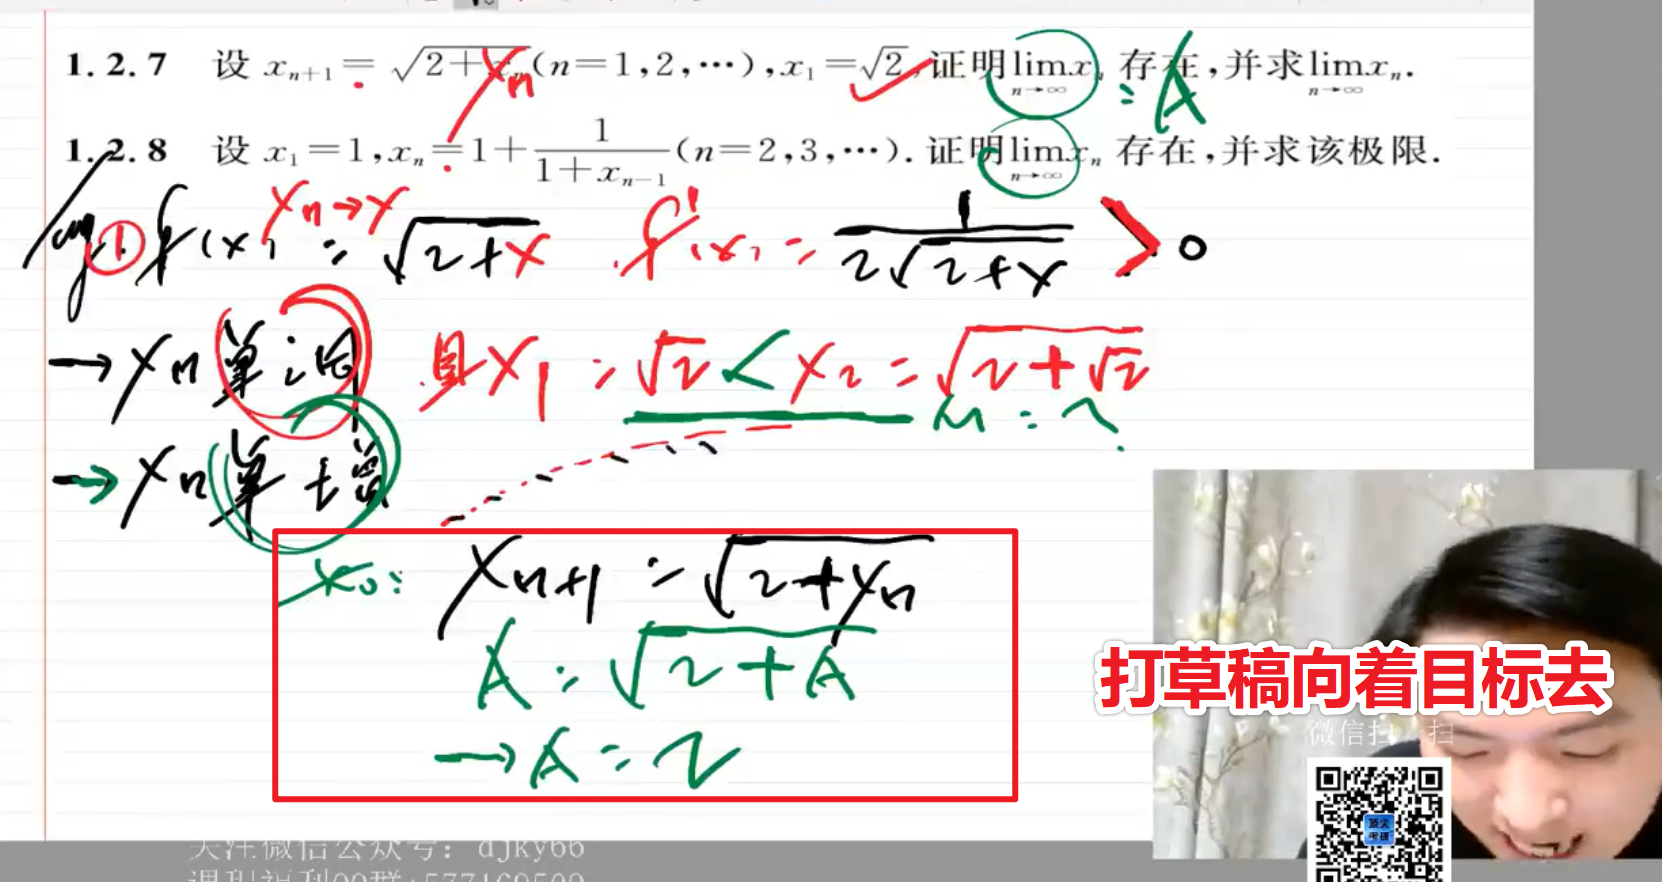 1.2.7 设 xₙ₊₁ = √(2+xₙ) (n=1,2,⋯), x₁=√2, 证明 lim_{n→∞} xₙ 存在, 并求 lim_{n→∞} xₙ.
= A
1.2.8 设 x₁=1, xₙ=1+1/(1+xₙ₋₁) (n=2,3,⋯). 证明 lim_{n→∞} xₙ 存在, 并求该极限.
xₙ→x
① f(x) = √(2+x) f'(x) = 1/(2√(2+x)) > 0
→ xₙ 单调 且 x₁ = √2 < x₂ = √(2+√2)
M = ?
→ xₙ 单增
xₙ₊₁ = √(2+xₙ)
A = √(2+A)
→ A = 2
打草稿向着目标去
微信扫一扫
顶尖考研
关注微信公众号：djky66